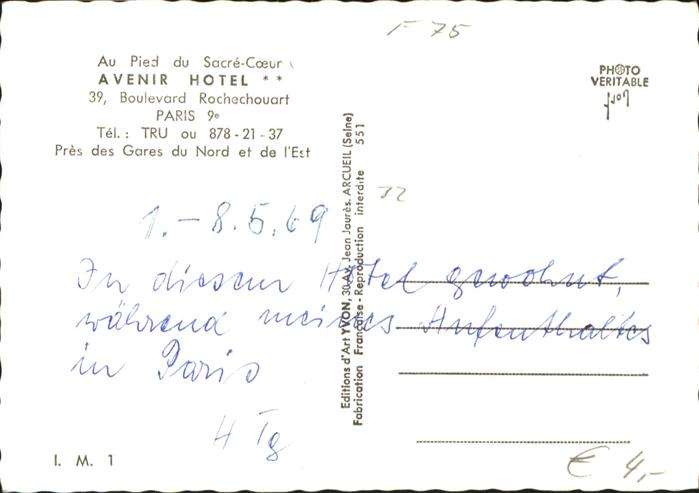 F 75
Au Pied du Sacré-Cœur
AVENIR HOTEL **
39, Boulevard Rochechouart
PARIS 9e
Tél. : TRU ou 878 - 21 - 37
Près des Gares du Nord et de l'Est
PHOTO
VERITABLE
Editions d'Art YVON, 30 Av. Jean Jaurès. ARCUEIL (Seine)
Fabrication Française - Reproduction interdite 551
32
1. - 8.5.69
In diesem Hotel gewohnt,
während meines Aufenthaltes
in Paris
4 Tg
I. M. 1
€ 4,-